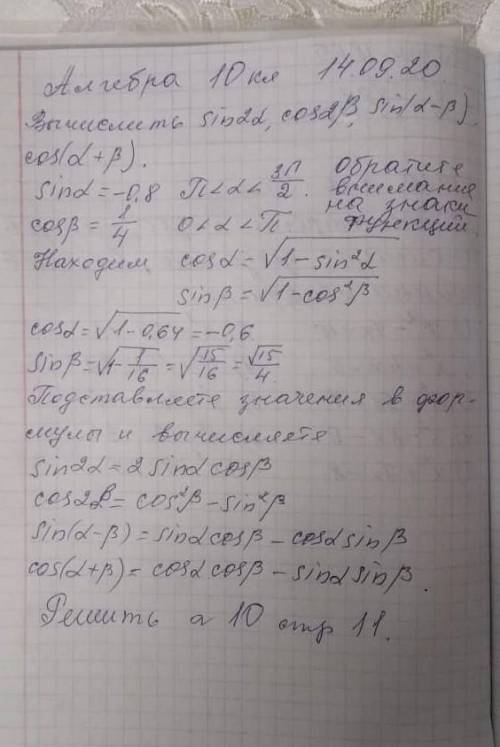 Алгебра 10 кл 14.09.20.
Вычислить sin2α, cos2β, sin(α-β),
cos(α+β).
sinα = -0,8 П<α<3П/2. обратите внимание на знаки функций
cosβ = 1/4 0<α<П
Находим cosα = √(1-sin²α)
sinβ = √(1-cos²β)
cosα = √(1-0,64) = -0,6.
sinβ = √(1-1/16) = √(15/16) = √15/4.
Подставляете значения в фор-
мулы и вычисляете
sin2α = 2 sinα cosβ
cos2β = cos²β - sin²β
sin(α-β) = sinα cosβ - cosα sinβ
cos(α+β) = cosα cosβ - sinα sinβ.
Решить а 10 стр 11.